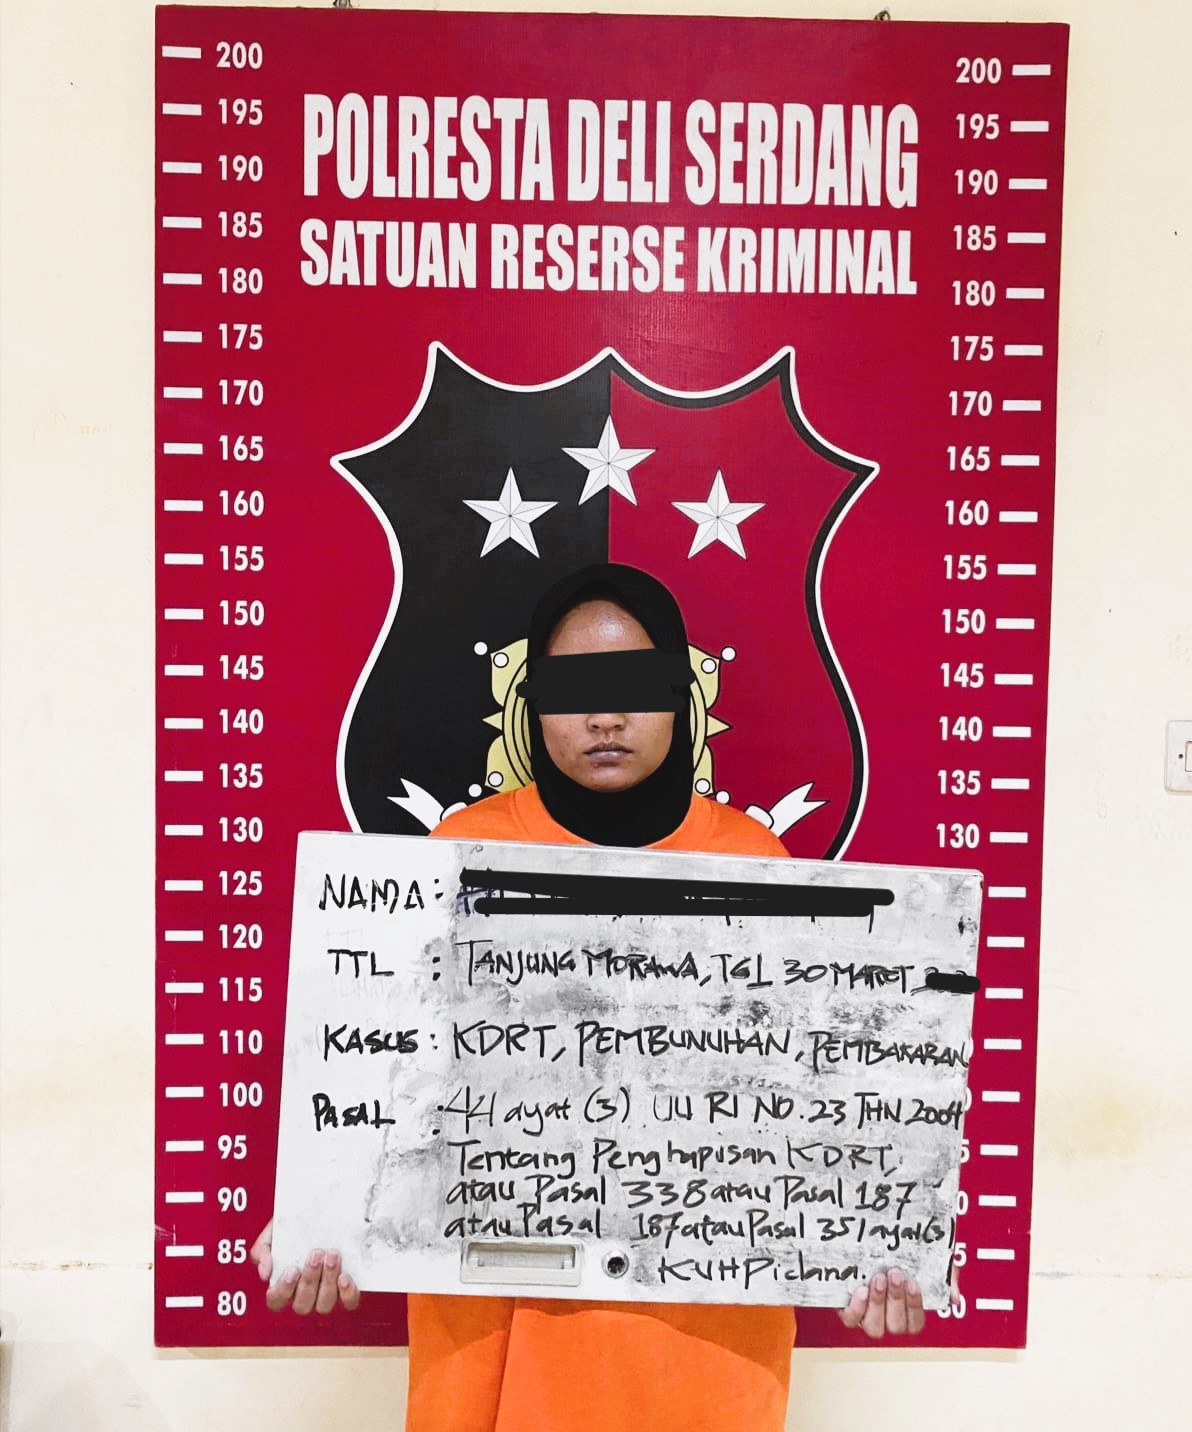 POLRESTA DELI SERDANG
SATUAN RESERSE KRIMINAL
200 200
195 195
190 190
185 185
180 180
175 175
170 170
165 165
160 160
155 155
150 150
145 145
140 140
135 135
130 130
125
120
115
110
100
95
90
85
80
NAMA :
TTL : TANJUNG MORAWA, TGL 30 MARET
KASUS : KDRT, PEMBUNUHAN, PEMBAKARAN
PASAL : 44 ayat (3) UU RI NO. 23 THN 2004
Tentang Penghapusan KDRT,
atau Pasal 338 atau Pasal 187
atau Pasal 187 atau Pasal 351 ayat (3)
KUHPidana.